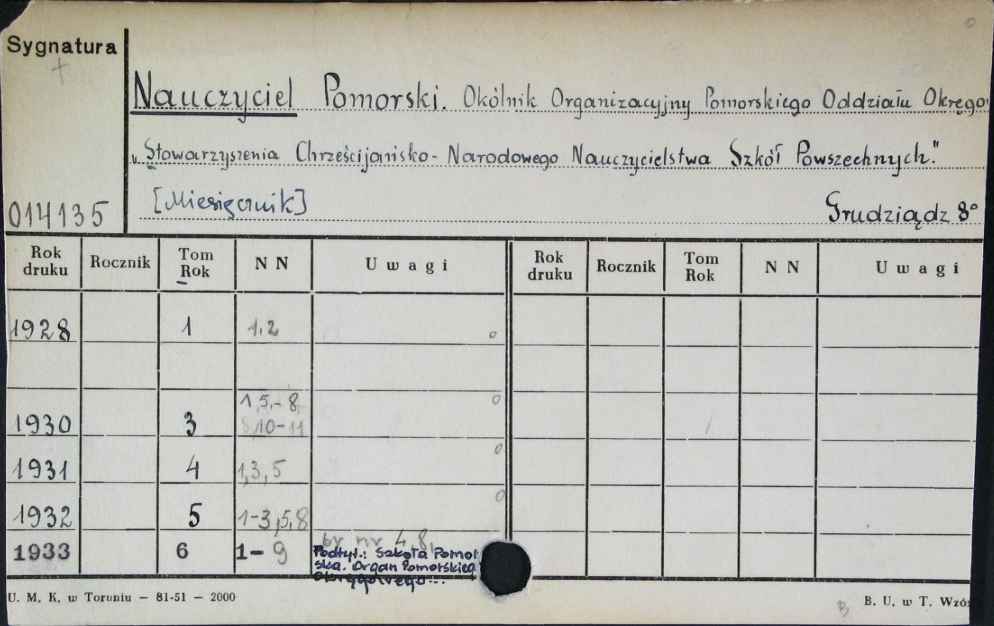 Sygnatura
Nauczyciel Pomorski. Okólnik Organizacyjny Pomorskiego Oddziału Okręgo
„Stowarzyszenia Chrześcijańsko-Narodowego Nauczycielstwa Szkół Powszechnych."
[Miesięcznik] Grudziądz 8°
014135
Rok druku Rocznik Tom Rok NN Uwagi Rok druku Rocznik Tom Rok NN Uwagi
1928 1 1,2
1930 3 1,5,-8, 10-11
1931 4 1,3,5
1932 5 1-3,5,8
br nr 4,8,
1933 6 1-9 Podtyt.: Szkoła Pomor
ska. Organ Pomorskieg
Okręgowego...
U. M. K. w Toruniu — 81-51 — 2000
B. U. w T. Wzó